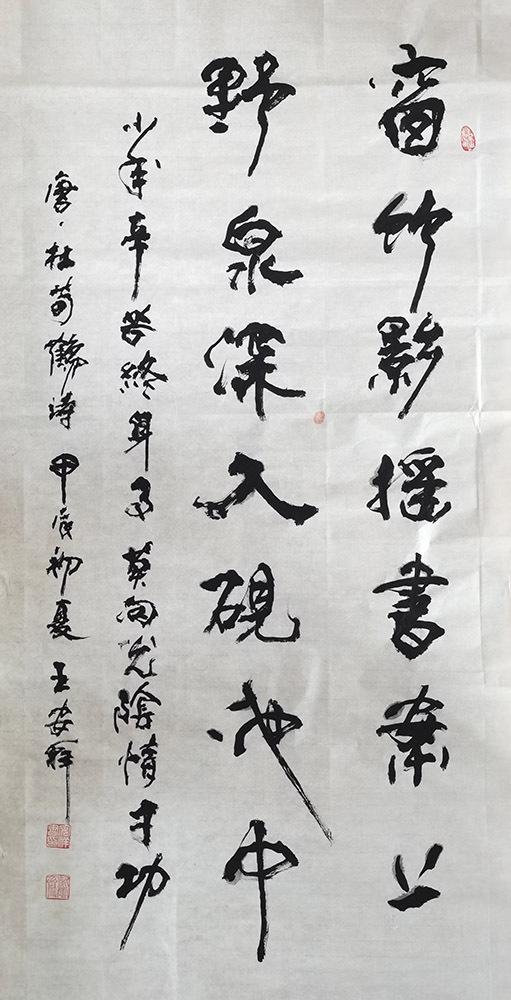 窗竹影摇書案上
野泉深入硯池中
少年辛苦終身事莫向光陰惰寸功
唐·杜荀鶴詩 甲辰初夏 王安